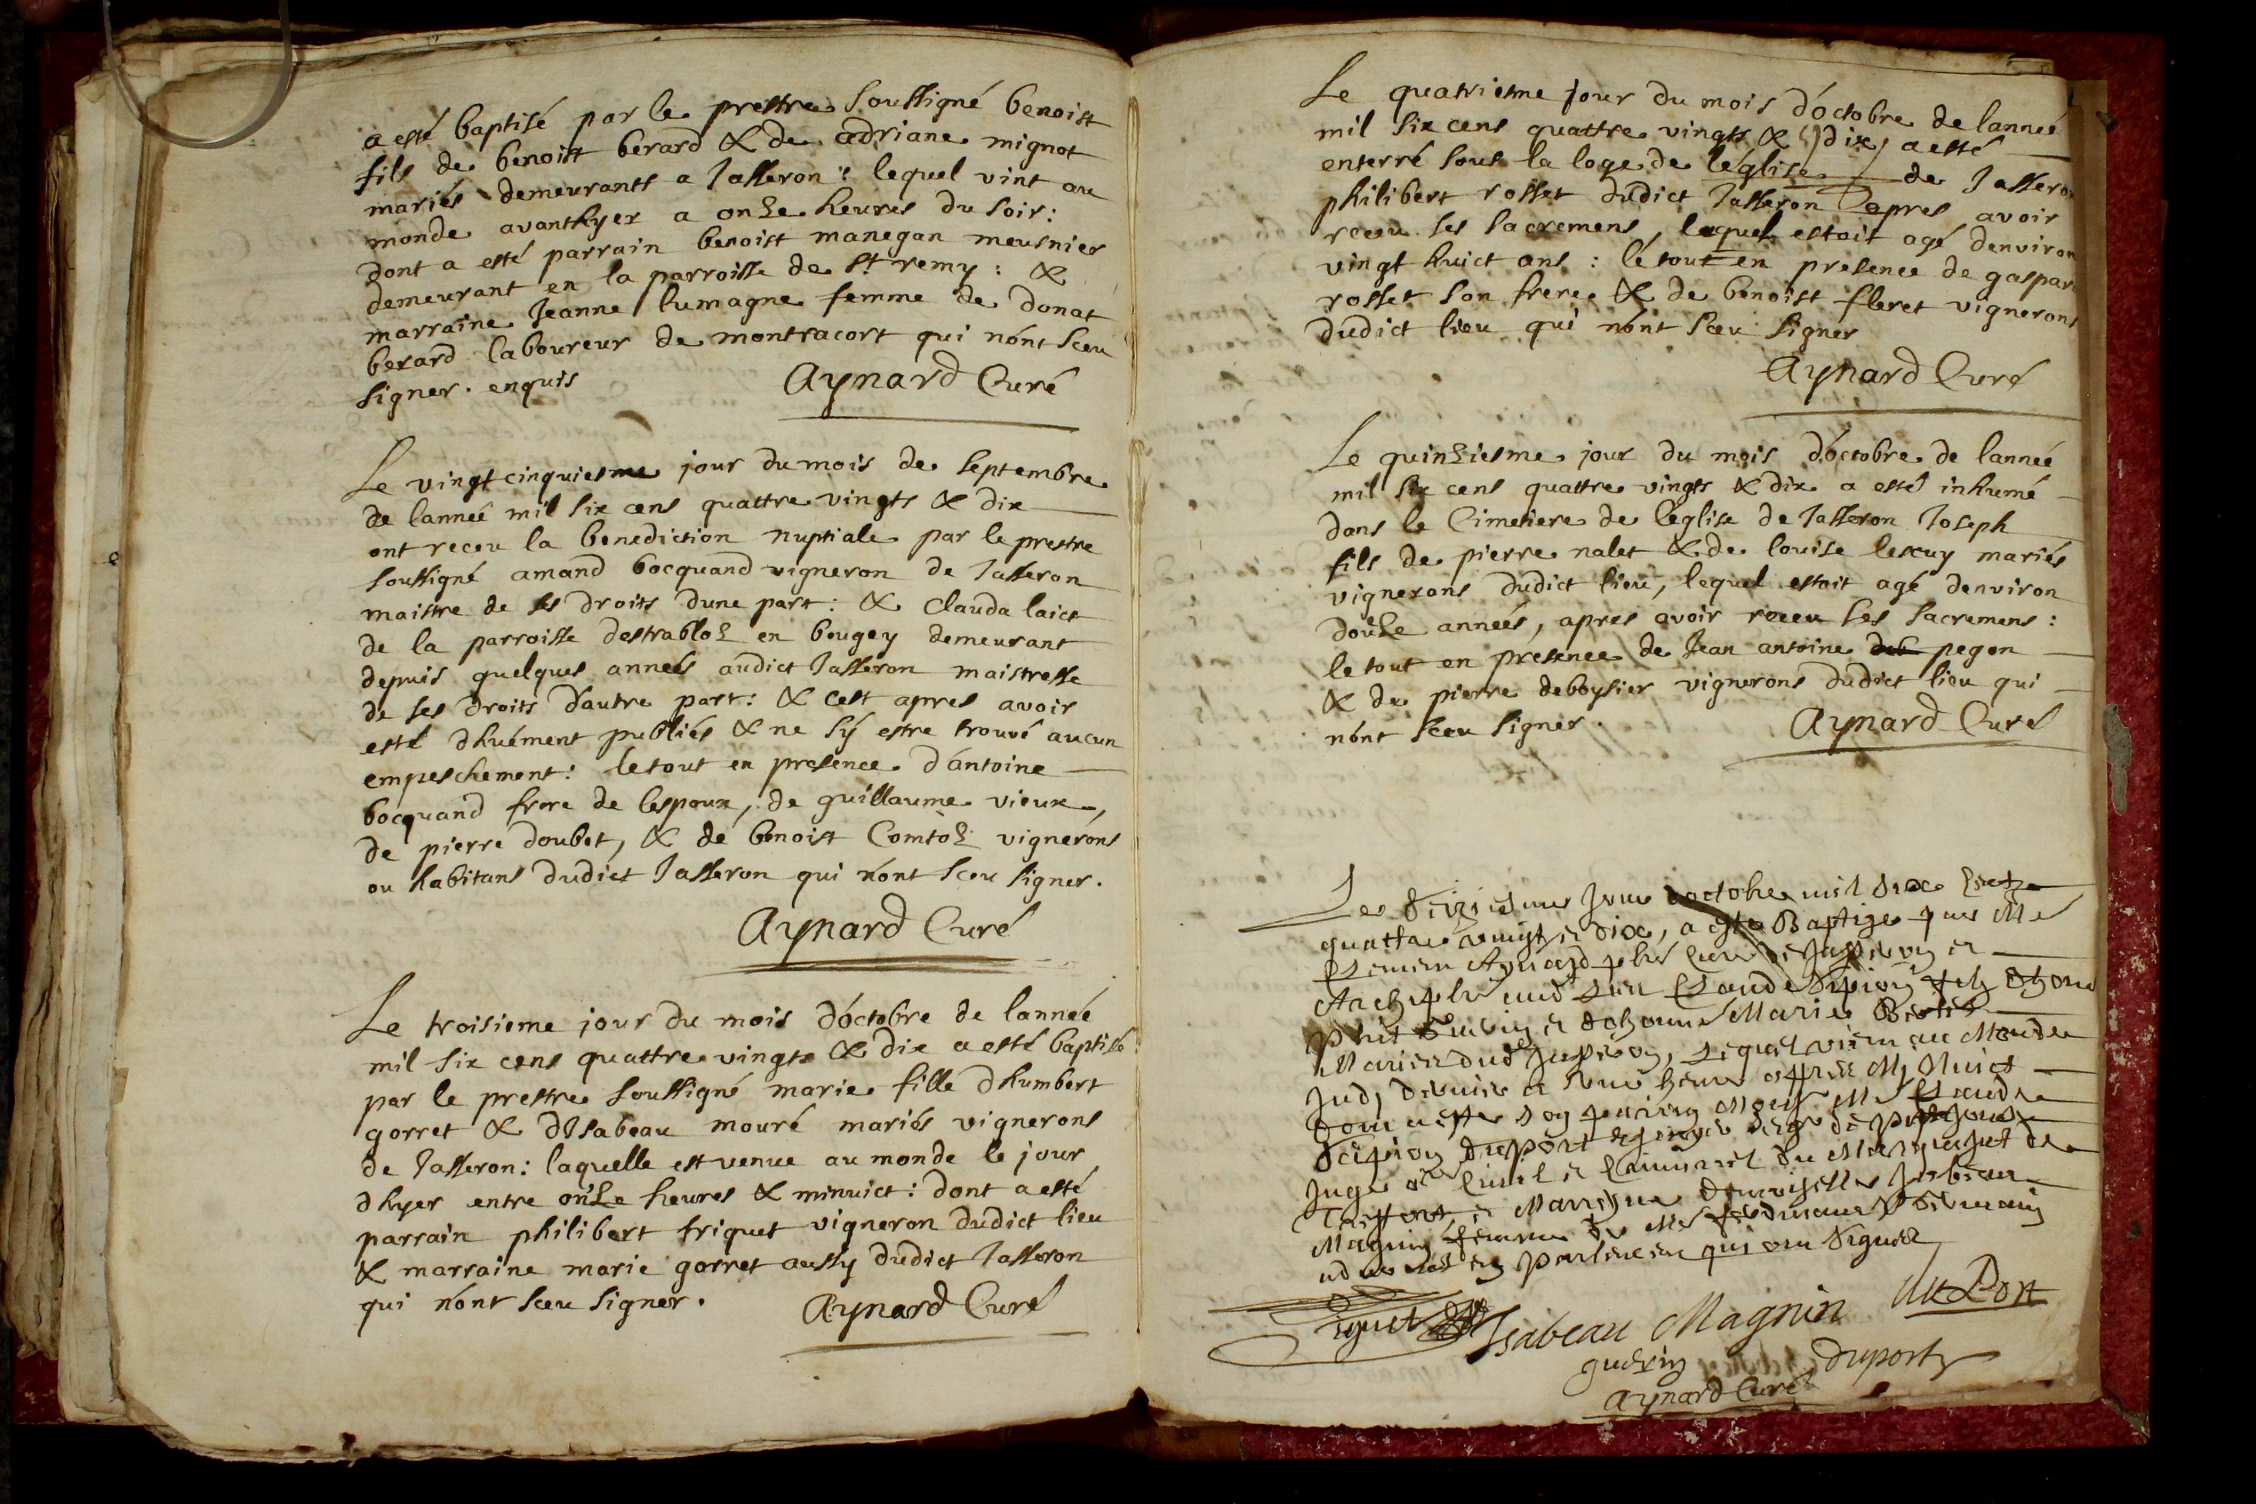 a esté baptisé par le prestre soussigné benoist
fils de benoist berard & de adriane mignot
mariés demeurants a Jasseron : lequel vint au
monde avanthyer a onze heures du soir :
dont a esté parrain benoist manegan meusnier
demeurant en la parroisse de St remy : &
marraine Jeanne humagne femme de donat
berard laboureur de montracort qui nónt sceu
signer . enquis Aynard Curé
Le vingt cinquiesme jour du mois de septembre
de lanneé mil six cens quattre vingts & dix
ont receu la benediction nuptiale par le prestre
soussigné amand bocquand vigneron de Jasseron
maistre de ses droits dune part : & Clauda laict
de la parroisse destrabloz en beugey demeurant
depuis quelques anneés audict Jasseron maistresse
de ses droits dautre part : & cest apres avoir
esté dhuément publiés & ne sý estre trouvé aucun
empeschement : le tout en presence dántoine
bocquand frere de lespoux, de guillaume vieux,
de pierre doubet, & de benoist Comtoz vignerons
ou habitans dudict Jasseron qui nónt sceu signer .
Aynard Curé
Le troisieme jour du mois dóctobre de lanneé
mil six cens quattre vingts & dix a esté baptisée
par le prestre soussigné marie fille dhumbert
gorret & dIsabeau mouré mariés vignerons
de Jasseron : laquelle est venue au monde le jour
dhyer entre onze heures & minuict : dont a esté
parrain philibert friquet vigneron dudict lieu
& marraine marie gorret aussy dudict Jasseron
qui nónt sceu signer . Aynard Curé
Le quatriesme jour du mois dóctobre de lanneé
mil six cens quattre vingts & dix a esté
enterré sous la loge de léglise de Jasseron
philibert rosset dudict Jasseron apres avoir
receu ses sacremens, lequel estoit agé denviron
vingt huict ans : le tout en presence de gaspar
rosset son frere & de benoist fleret vignerons
dudict lieu qui nónt sceu signer
Aynard Curé
Le quinziesme jour du mois dóctobre de lanneé
mil six cens quattre vingts & dix a esté inhumé
dans le Cimetiere de léglise de Jasseron Joseph
fils de pierre nalet & de louise lescuy mariés
vignerons dudict lieu, lequel estoit agé denviron
douze anneés, apres avoir receu ses sacremens :
le tout en presence de Jean antoine pegon
& de pierre deboysier vignerons dudict lieu qui
nónt sceu signer . Aynard Curé
Le seiziesme Jour doctobre mil six cents
quattre vingt et dix, a este Baptize par Me
Aynard pbre Curé de Jasseron et
Archipbre Claude Scipion fils
et Marie
Mariez dud Jasseron, lequel vient au Monde
Judy dernier a heure apres My Nuict
dom este son parrain Me Claude
Scipion Duport
Juge Civil et Criminel du Marquisat de
Treffort, et Marreyne damoiselle Isabeau
Magnin femme de Me
advocat en Parlement qui ont Signez
Isabeau Magnin DuPort
guerin Duport
Aynard Curé